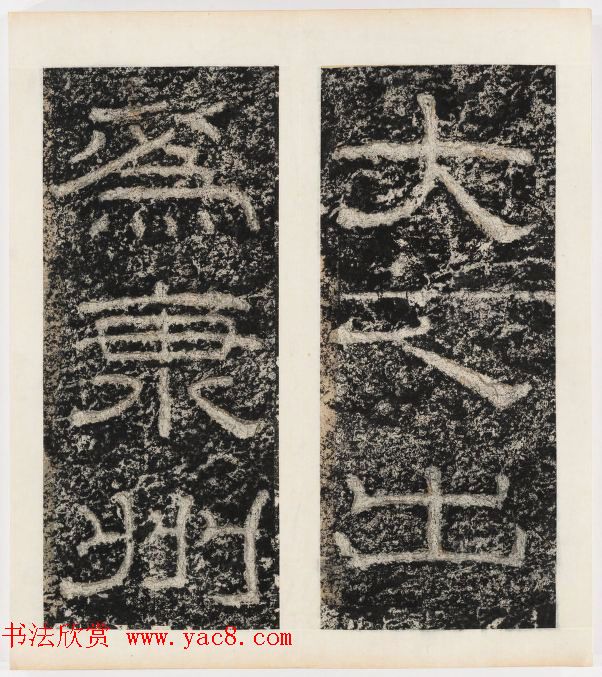 大之出
為東州
书法欣赏 www.yac8.com